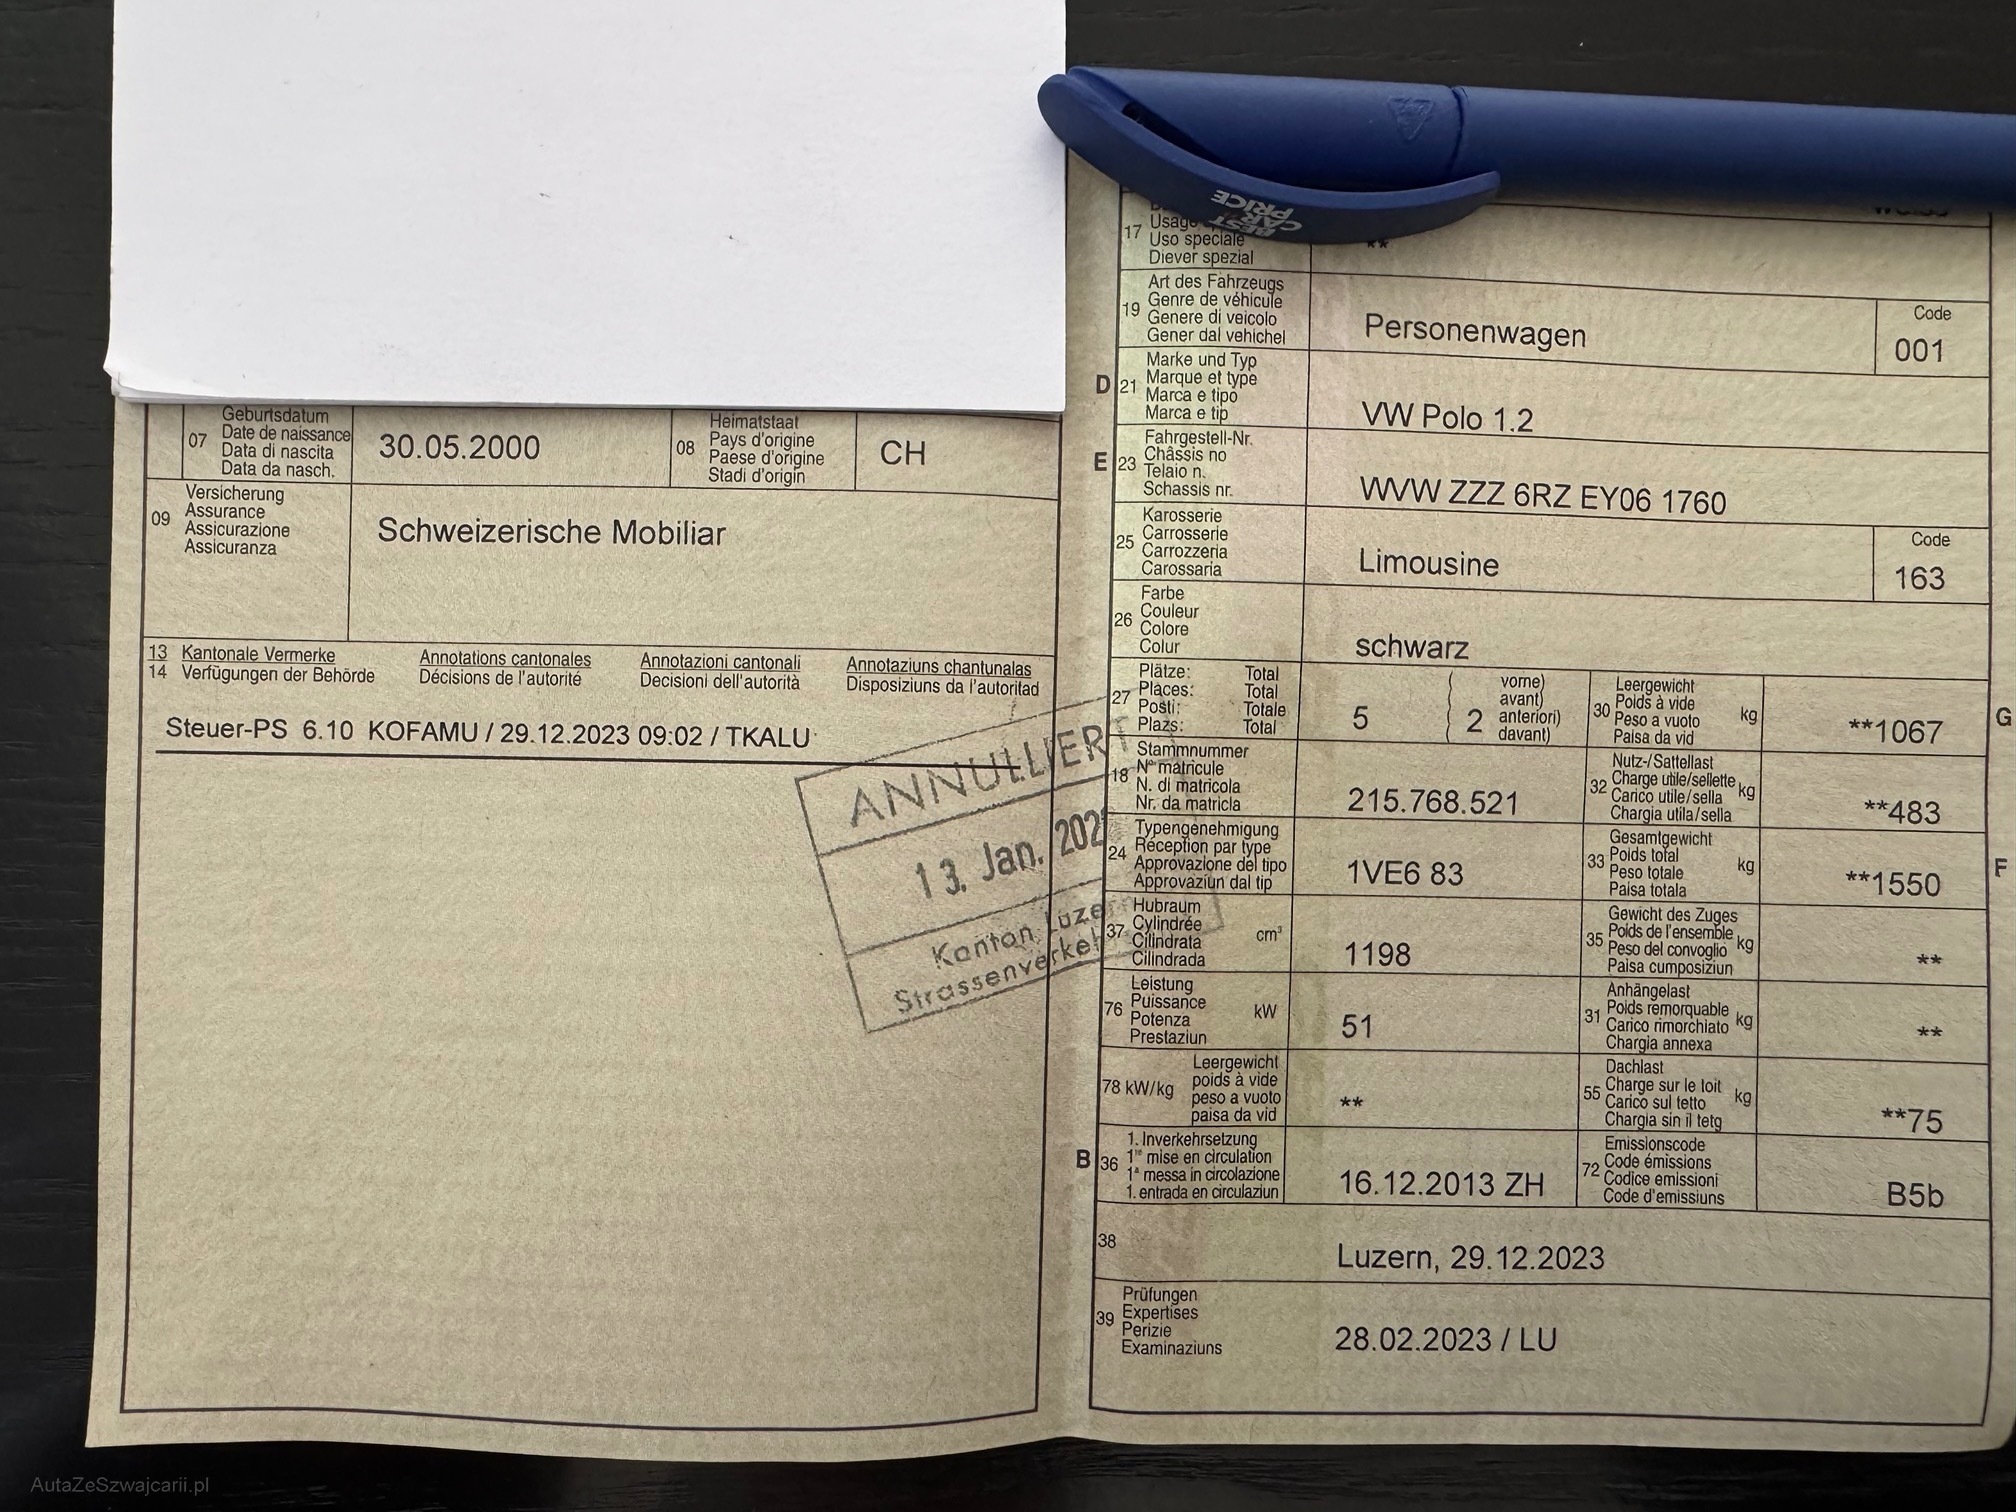 07
Geburtsdatum
Date de naissance
Data di nascita
Data da nasch.
30.05.2000
08
Heimatstaat
Pays d'origine
Paese d'origine
Stadi d'origin
CH
09
Versicherung
Assurance
Assicurazione
Assicuranza
Schweizerische Mobiliar
13 Kantonale Vermerke Annotations cantonales Annotazioni cantonali Annotaziuns chantunalas
14 Verfügungen der Behörde Décisions de l'autorité Decisioni dell'autorità Disposiziuns da l'autoritad
Steuer-PS 6.10 KOFAMU / 29.12.2023 09:02 / TKALU
ANNULLIERT
13. Jan. 202
Kanton Luzern
Strassenverkeh
BEST
CAR
PRICE
17
Usage
Uso speciale
Diever spezial
**
19
Art des Fahrzeugs
Genre de véhicule
Genere di veicolo
Gener dal vehichel
Personenwagen
Code
001
D 21
Marke und Typ
Marque et type
Marca e tipo
Marca e tip
VW Polo 1.2
E 23
Fahrgestell-Nr.
Châssis no
Telaio n.
Schassis nr.
WVW ZZZ 6RZ EY06 1760
25
Karosserie
Carrosserie
Carrozzeria
Carossaria
Limousine
Code
163
26
Farbe
Couleur
Colore
Colur
schwarz
27
Plätze: Total
Places: Total
Posti: Totale
Plazs: Total
5
2
vorne)
avant)
anteriori)
davant)
30
Leergewicht
Poids à vide
Peso a vuoto
Paisa da vid
kg
**1067
G
18
Stammnummer
N° matricule
N. di matricola
Nr. da matricla
215.768.521
32
Nutz-/Sattellast
Charge utile/sellette
Carico utile/sella
Chargia utila/sella
kg
**483
24
Typengenehmigung
Réception par type
Approvazione del tipo
Approvaziun dal tip
1VE6 83
33
Gesamtgewicht
Poids total
Peso totale
Paisa totala
kg
**1550
F
37
Hubraum
Cylindrée
Cilindrata
Cilindrada
cm³
1198
35
Gewicht des Zuges
Poids de l'ensemble
Peso del convoglio
Paisa cumposiziun
kg
**
76
Leistung
Puissance
Potenza
Prestaziun
kW
51
31
Anhängelast
Poids remorquable
Carico rimorchiato
Chargia annexa
kg
**
78 kW/kg
Leergewicht
poids à vide
peso a vuoto
paisa da vid
**
55
Dachlast
Charge sur le toit
Carico sul tetto
Chargia sin il tetg
kg
**75
B 36
1. Inverkehrsetzung
1re mise en circulation
1a messa in circolazione
1. entrada en circulaziun
16.12.2013 ZH
72
Emissionscode
Code émissions
Codice emissioni
Code d'emissiuns
B5b
38
Luzern, 29.12.2023
39
Prüfungen
Expertises
Perizie
Examinaziuns
28.02.2023 / LU
AutaZeSzwajcarii.pl